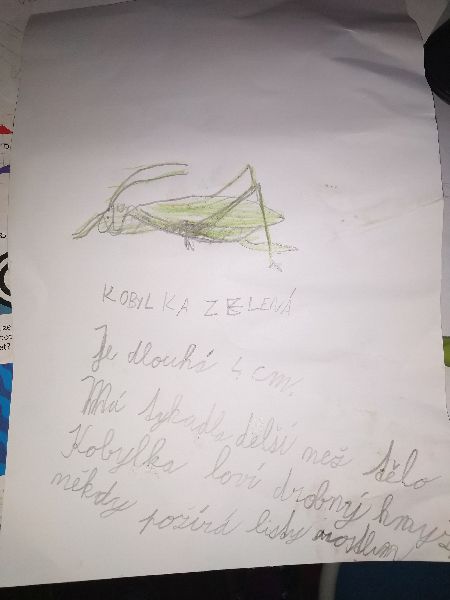 KOBYLKA ZELENÁ
Je dlouhá 4 cm.
Má tykadla delší než tělo
Kobylka loví drobný hmyz
někdy požírá listy rostlin